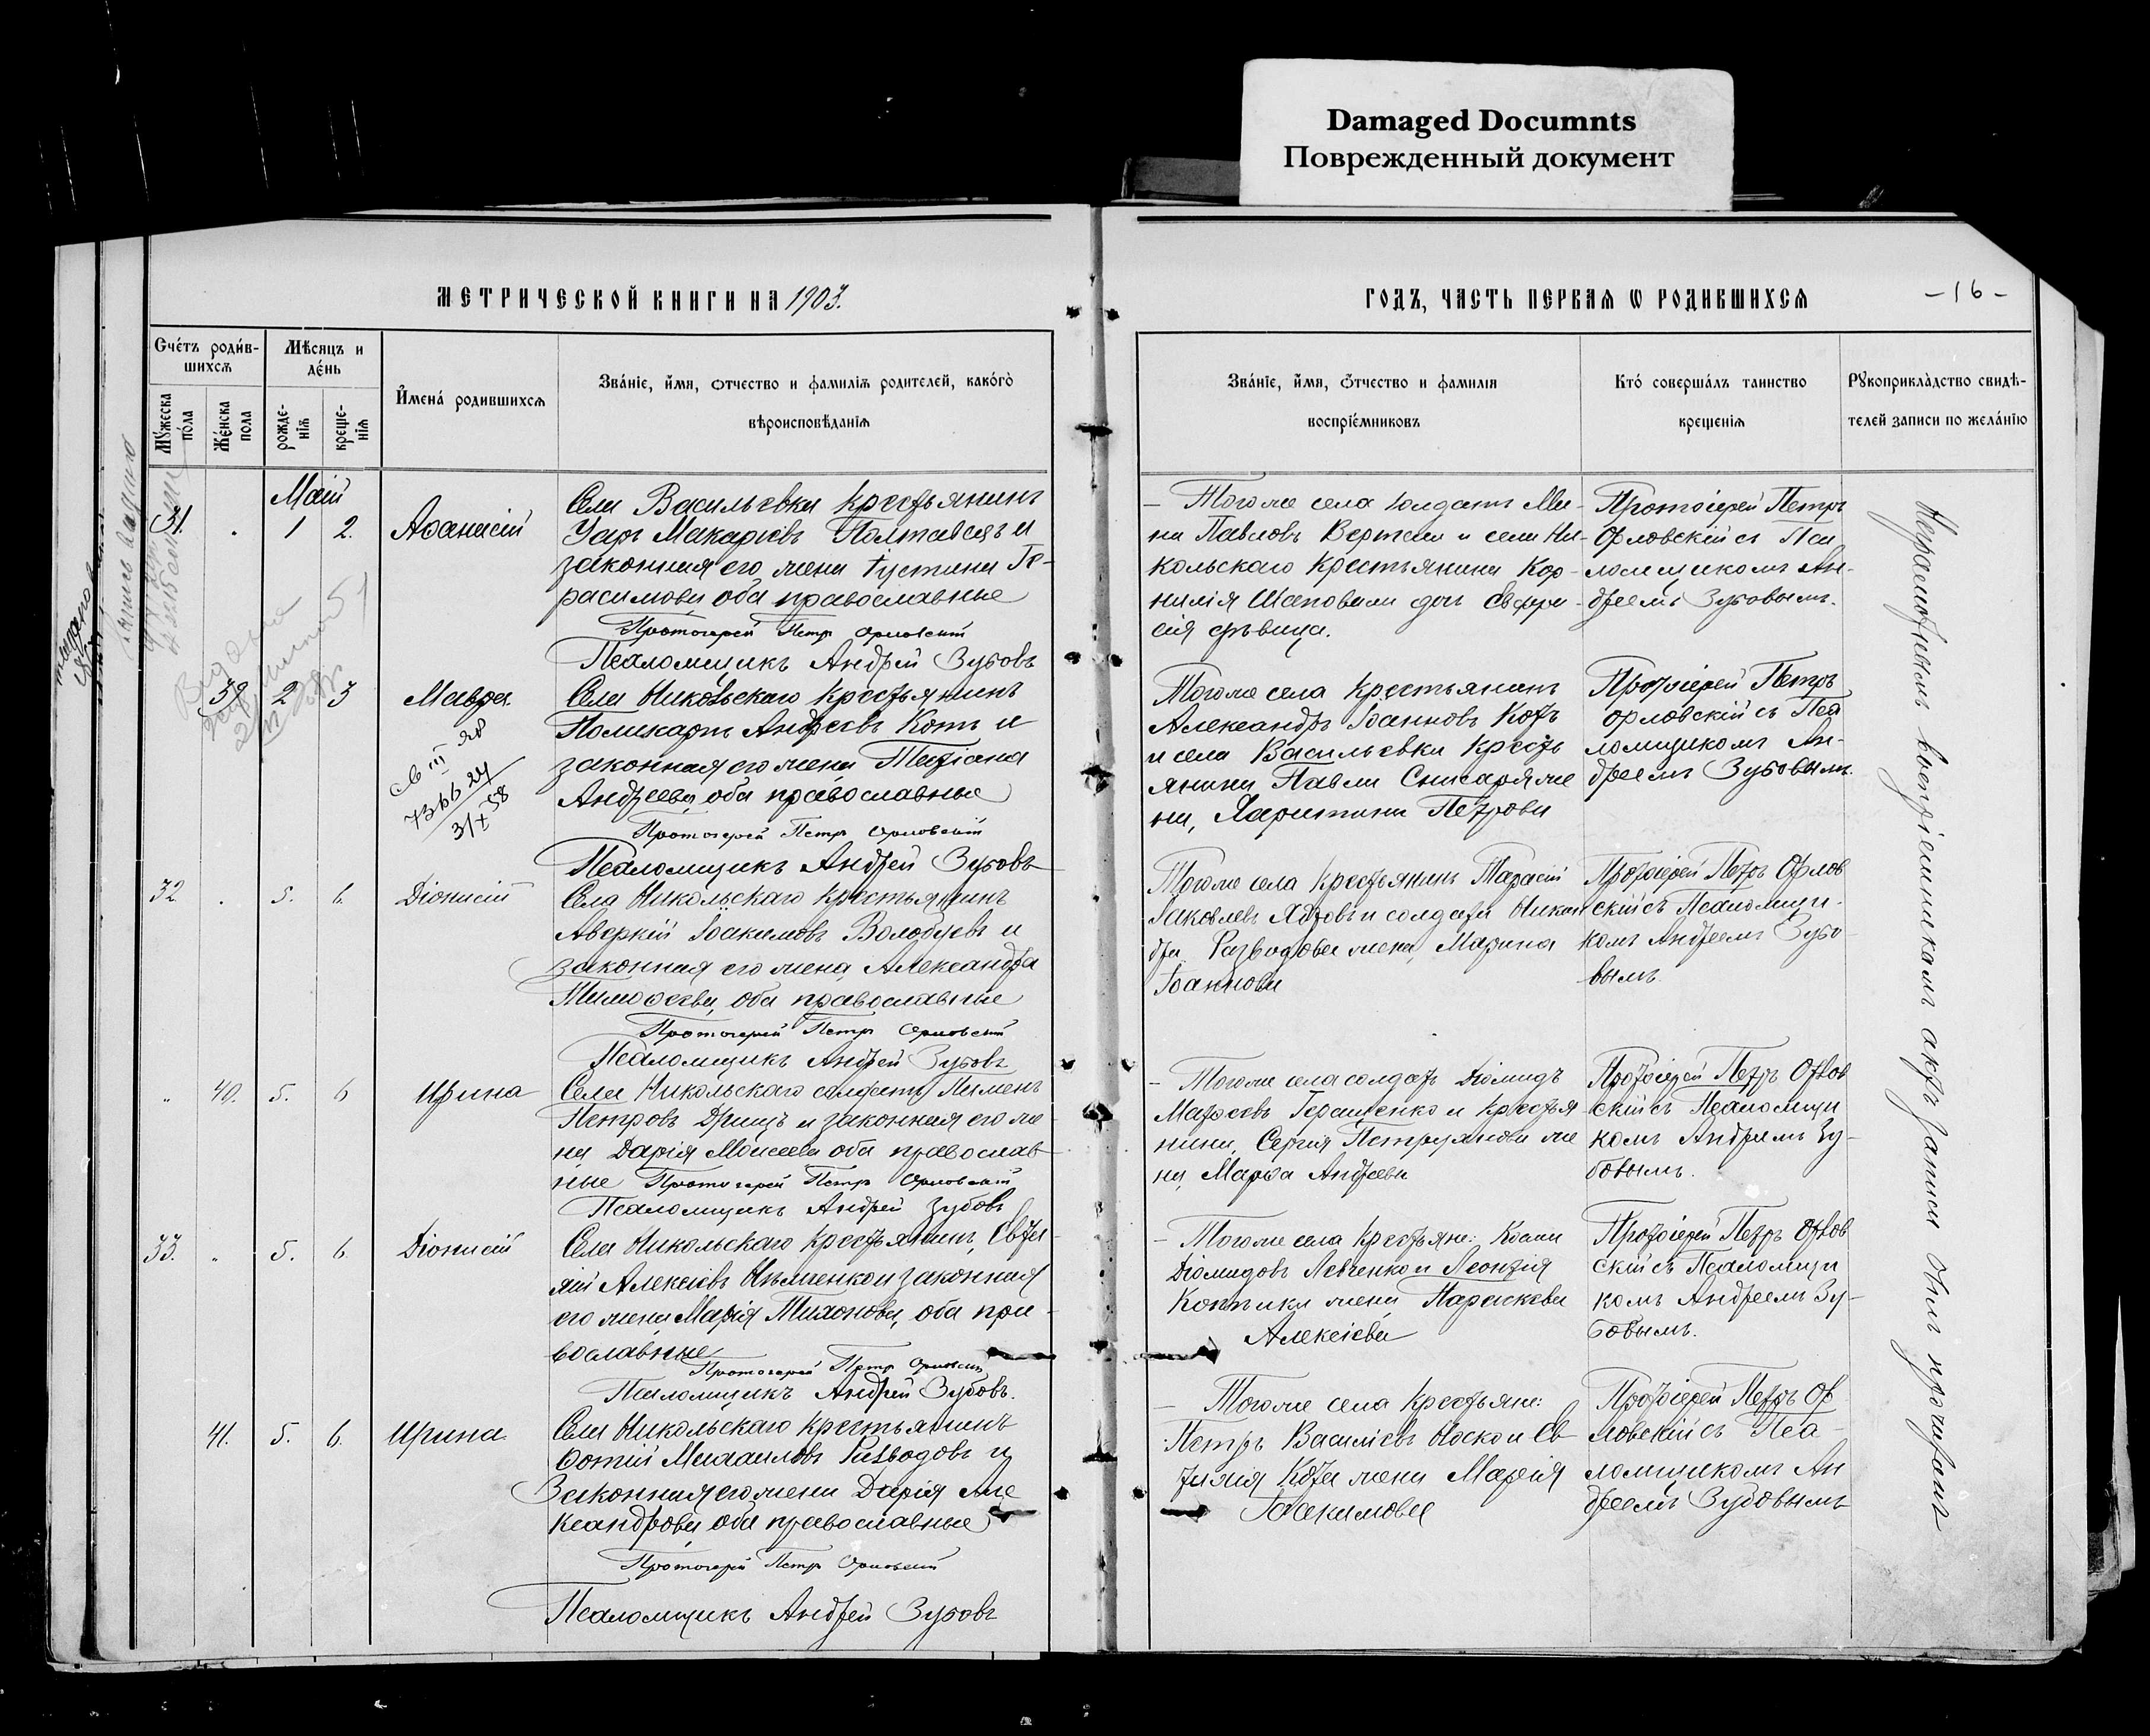 Damaged Documnts
Поврежденный документ
МЕТРИЧЕСКОЙ КНИГИ НА 1903.
ГОДЪ, ЧАСТЬ ПЕРВАѦ Ѡ РОДИВШИХСѦ
-16-
Счетъ родив-
шихсѧ
Мѣсяцъ и
день
Мужеска
пола
Женска
пола
рожде-
нїѧ
креще-
нїѧ
Имена родившихсѧ
Званїе, имя, отчество и фамилїѧ родителей, какого
вѣроисповѣданїѧ
Званїе, имя, отчество и фамилїя
воспрїемниковъ
Кто совершалъ таинство
крещенїѧ
Рукоприкладство свидѣ-
телей записи по желанїю
Май
31. 1 2. Аѳанасій
Села Васильевки крестьянинъ
Уаръ Макаріевъ Полтавецъ и
законная его жена Іустина Ге-
расимова, оба православные
Протоіерей Петръ Орловскій
Псаломщикъ Андрей Зубовъ
Тогоже села солдатъ Ми-
на Павловъ Вертела и села Ни-
кольскаго крестьянина Кор-
нилія Шаповала дочь Евфро-
сія дѣвица.
Протоіерей Петръ
Орловскій съ Пса
ломщикомъ Ан-
дреемъ Зубовымъ.
39 2 3 Мавра
Села Никольскаго крестьянинъ
Поликарпъ Андреевъ Котъ и
законная его жена Татіана
Андреева, оба православные
Протоіерей Петръ Орловскій
Псаломщикъ Андрей Зубовъ
Тогоже села крестьянинъ
Александръ Іоанновъ Котъ
и села Васильевки кресть
янина Павла Снисаря же
на, Харитина Петрова
Протоіерей Петръ
Орловскій съ Пса
ломщикомъ Ан-
дреемъ Зубовымъ.
32 . 5. 6. Діонисій
Села Никольскаго крестьянинъ
Аверкій Іоакимовъ Волобуевъ и
законная его жена, Александра
Тимоѳеева, оба православные
Протоіерей Петръ Орловскій
Псаломщикъ Андрей Зубовъ
Тогоже села крестьянинъ Тарасій
Іаковлевъ и солдата Никан
дра Разводова жена, Марина
Іоаннова
Протоіерей Петръ Орлов
скій съ Псаломщи-
комъ Андреемъ Зубо-
вымъ.
" 40. 5. 6 Ирина
Села Никольскаго солдатъ Пименъ
Петровъ Дрищъ и законная его же
на, Дарія Моисеева оба православ-
ные Протоіерей Петръ Орловскій
Псаломщикъ Андрей Зубовъ
Тогоже села солдатъ Діомидъ
Матѳеевъ Геращенко и крестья
нина, Сергія Петруянова же
на, Марѳа Андреева
Протоіерей Петръ Орлов
скій съ Псаломщи
комъ Андреемъ Зу-
бовымъ.
33. " 5. 6. Діонисій
Села Никольскаго крестьянинъ, Евѳи-
мій Алексіевъ Ильченко и законная
его жена, Марія Тихонова, оба пра-
вославные
Протоіерей Петръ Орловскій
Псаломщикъ Андрей Зубовъ.
Тогоже села крестьяне: Косма
Діомидовъ Левченко и Леонтія
Коптика жена, Параскева
Алексіева
Протоіерей Петръ Орлов
скій съ Псаломщи
комъ Андреемъ Зу-
бовымъ.
41. 5. 6. Ирина
Села Никольскаго крестьянинъ
Фотій Михаиловъ Разводовъ и
Законная его жена Дарія Але
ксандрова, оба православные
Протоіерей Петръ Орловскій
Псаломщикъ Андрей Зубовъ
Тогоже села крестьяне:
Петръ Василіевъ Носко и Ев
ѳимія Кота жена Марія
Іоакимова
Протоіерей Петръ Ор
ловскій съ Пса-
ломщикомъ Ан
дреемъ Зубовымъ
Неграмотнымъ воспріемникамъ актъ записи былъ прочитанъ